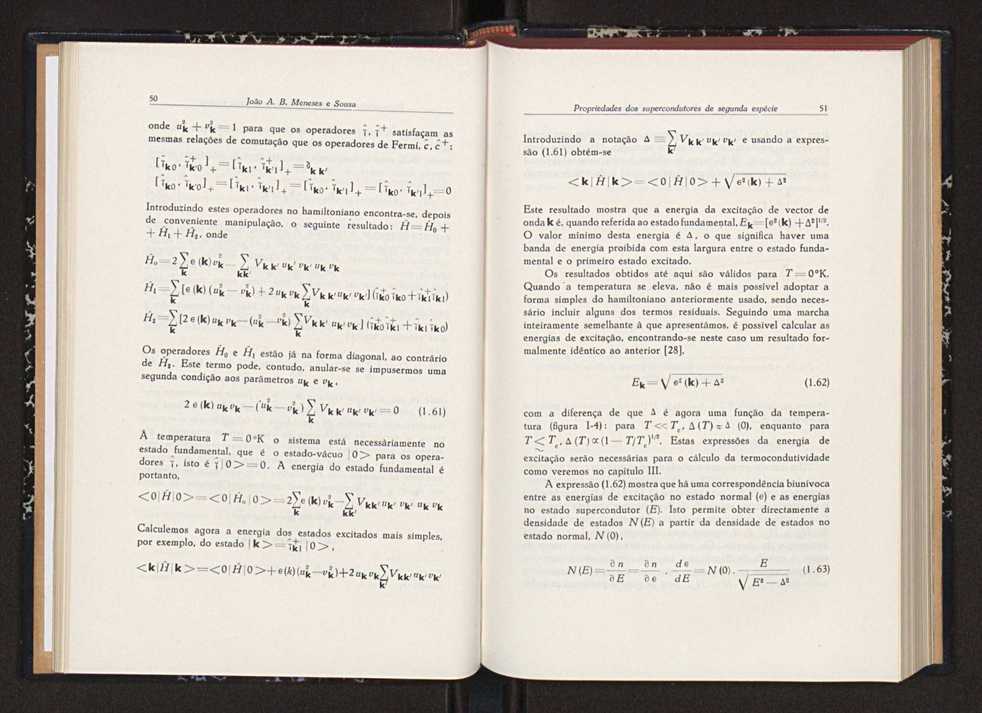 50
João A. B. Meneses e Sousa
onde u²𝐤 + v²𝐤 = 1 para que os operadores γ̂, γ̂⁺ satisfaçam as
mesmas relações de comutação que os operadores de Fermi, c, c⁺:
[γ̂𝐤0, γ̂⁺𝐤'0]₊ = [γ̂𝐤1, γ̂⁺𝐤'1]₊ = δ𝐤 𝐤'
[γ̂𝐤0, γ̂𝐤'0]₊ = [γ̂𝐤1, γ̂𝐤'1]₊ = [γ̂𝐤0, γ̂𝐤'1]₊ = [γ̂𝐤0, γ̂𝐤'1]₊ = 0
Introduzindo estes operadores no hamiltoniano encontra-se, depois
de conveniente manipulação, o seguinte resultado: Ĥ = Ĥ₀ +
+ Ĥ₁ + Ĥ₂, onde
Ĥ₀ = 2 ∑𝐤 e (𝐤) v²𝐤 — ∑𝐤𝐤' V𝐤 𝐤' u𝐤' v𝐤' u𝐤 v𝐤
Ĥ₁ = ∑𝐤 [e (𝐤) (u²𝐤 — v²𝐤) + 2 u𝐤 v𝐤 ∑𝐤' V𝐤 𝐤' u𝐤' v𝐤'] (γ̂⁺𝐤0 γ̂𝐤0 + γ̂⁺𝐤1 γ̂𝐤1)
Ĥ₂ = ∑𝐤 [2 e (𝐤) u𝐤 v𝐤 — (u²𝐤 — v²𝐤) ∑𝐤 V𝐤 𝐤' u𝐤' v𝐤'] (γ̂⁺𝐤0 γ̂⁺𝐤1 + γ̂𝐤1 γ̂𝐤0)
Os operadores Ĥ₀ e Ĥ₁ estão já na forma diagonal, ao contrário
de Ĥ₂. Este termo pode, contudo, anular-se se impusermos uma
segunda condição aos parâmetros u𝐤 e v𝐤,
2 e (𝐤) u𝐤 v𝐤 — (u²𝐤 — v²𝐤) ∑𝐤 V𝐤 𝐤' u𝐤' v𝐤' = 0 (1.61)
À temperatura T = 0°K o sistema está necessàriamente no
estado fundamental, que é o estado-vácuo |0> para os opera-
dores γ̂, isto é γ̂|0> = 0. A energia do estado fundamental é
portanto,
<0|Ĥ|0> = <0|Ĥ₀|0> = 2∑𝐤 e (𝐤) v²𝐤 — ∑𝐤𝐤' V𝐤𝐤' u𝐤' v𝐤' u𝐤 v𝐤
Calculemos agora a energia dos estados excitados mais simples,
por exemplo, do estado |𝐤> = γ̂⁺𝐤1 |0>,
<𝐤|Ĥ|𝐤> = <0|Ĥ|0> + e(k) (u²𝐤 — v²𝐤) + 2 u𝐤 v𝐤 ∑𝐤' V𝐤𝐤' u𝐤' v𝐤'
Propriedades dos supercondutores de segunda espécie
51
Introduzindo a notação Δ ≡ ∑𝐤' V𝐤 𝐤' u𝐤' v𝐤' e usando a expres-
são (1.61) obtém-se
<𝐤|Ĥ|𝐤> = <0|Ĥ|0> + √(e² (𝐤) + Δ²)
Este resultado mostra que a energia da excitação de vector de
onda 𝐤 é, quando referida ao estado fundamental, E𝐤 = [e² (𝐤) + Δ²]¹ᐟ².
O valor mínimo desta energia é Δ, o que significa haver uma
banda de energia proibida com esta largura entre o estado funda-
mental e o primeiro estado excitado.
Os resultados obtidos até aqui são válidos para T = 0°K.
Quando a temperatura se eleva, não é mais possível adoptar a
forma simples do hamiltoniano anteriormente usado, sendo neces-
sário incluir alguns dos termos residuais. Seguindo uma marcha
inteiramente semelhante à que apresentámos, é possível calcular as
energias de excitação, encontrando-se neste caso um resultado for-
malmente idêntico ao anterior [28],
E𝐤 = √(e² (𝐤) + Δ²) (1.62)
com a diferença de que Δ é agora uma função da tempera-
tura (figura I-4): para T << Tc, Δ (T) ≈ Δ (0), enquanto para
T ≲ Tc, Δ (T) ∝ (1 — T/Tc)¹ᐟ². Estas expressões da energia de
excitação serão necessárias para o cálculo da termocondutividade
como veremos no capítulo III.
A expressão (1.62) mostra que há uma correspondência biunívoca
entre as energias de excitação no estado normal (e) e as energias
no estado supercondutor (E). Isto permite obter directamente a
densidade de estados N (E) a partir da densidade de estados no
estado normal, N (0),
N (E) = ∂n/∂E = ∂n/∂e . de/dE = N (0) . E/√(E² — Δ²) (1.63)